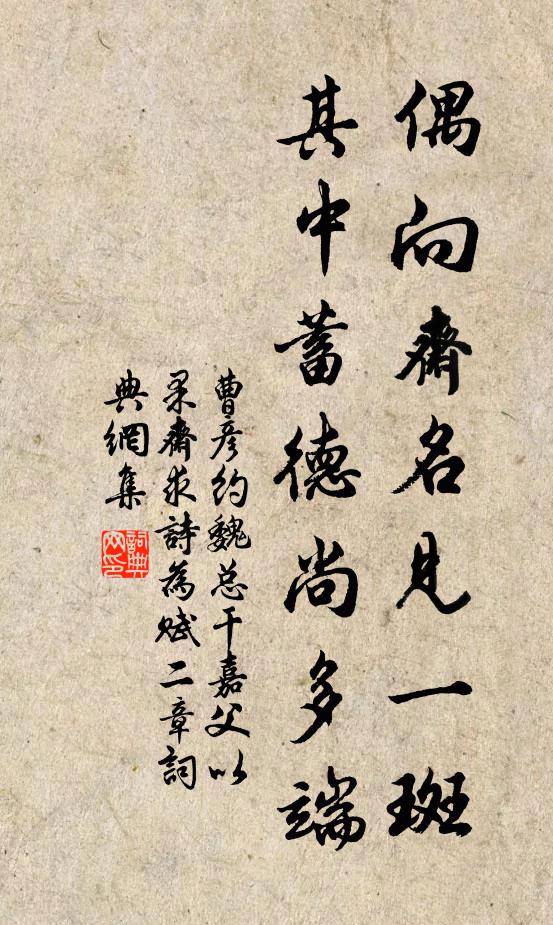 偶向齋名見一斑
其中蓄德尚多端
曹彦約魏总干嘉父以
果齋求詩為賦二章詞
典網集
詞典网印